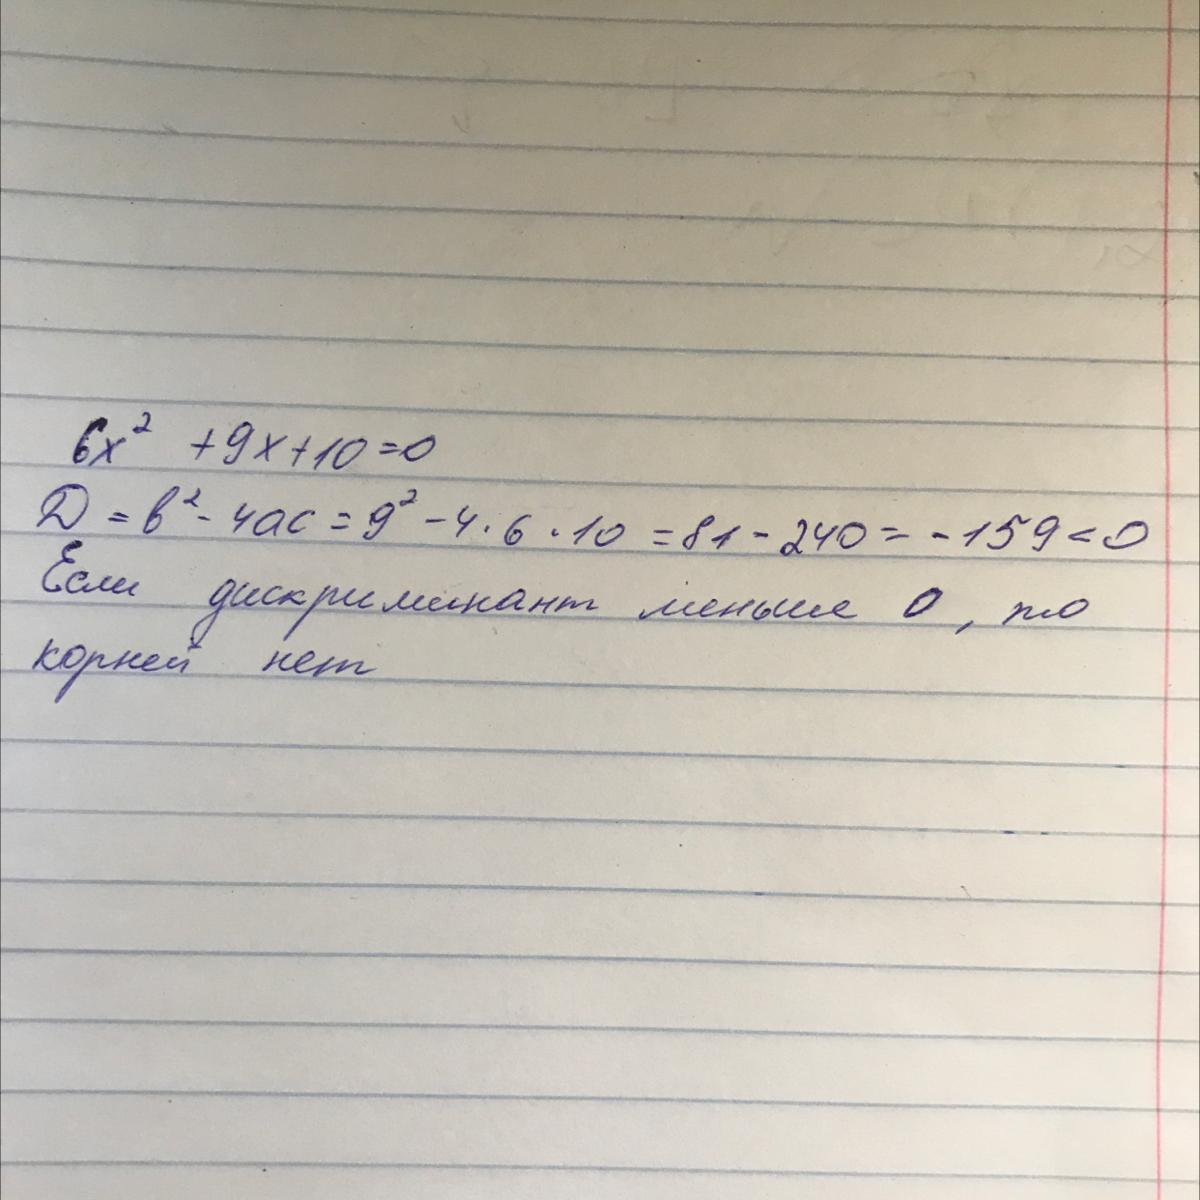 6x² +9x+10=0
D = b² - 4ac = 9² - 4 · 6 · 10 = 81 - 240 = -159 < 0
Если дискриминант меньше 0, то
корней нет